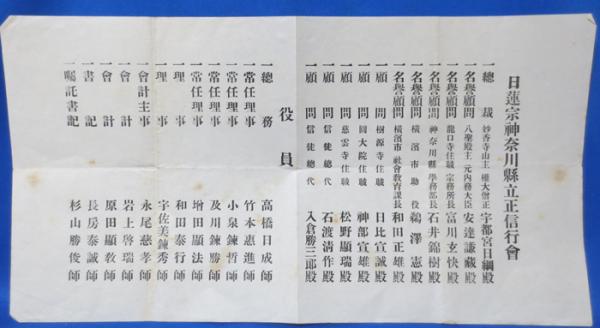 日蓮宗神奈川縣立正信行會
一總裁 妙香寺山主 權大僧正 宇都宮日綱殿
一名譽顧問 八聖殿主 元内務大臣 安達謙藏殿
一名譽顧問 龍口寺住職 宗務所長 富川玄快殿
一名譽顧問 神奈川縣學務部長 石井錦樹殿
一名譽顧問 橫濱市助役 鵜澤憲殿
一名譽顧問 橫濱市社會教育課長 和田正雄殿
一顧問 樹源寺住職 日比宣誠殿
一顧問 圓大院住職 神部宣雄殿
一顧問 慈雲寺住職 松野顯瑞殿
一顧問 信徒總代 石渡清作殿
一顧問 信徒總代 入倉勝三郎殿
役員
一總務 高橋日成師
一常任理事 竹本惠進師
一常任理事 小泉鍊哲師
一常任理事 及川鍊勝師
一常任理事 增田顯法師
一理事 和田泰行師
一理事 宇佐美鍊秀師
一會計主事 永尾慈孝師
一會計 岩上啓瑞師
一會計 原田顯教師
一書記 長房泰誠師
一囑託書記 杉山勝俊師